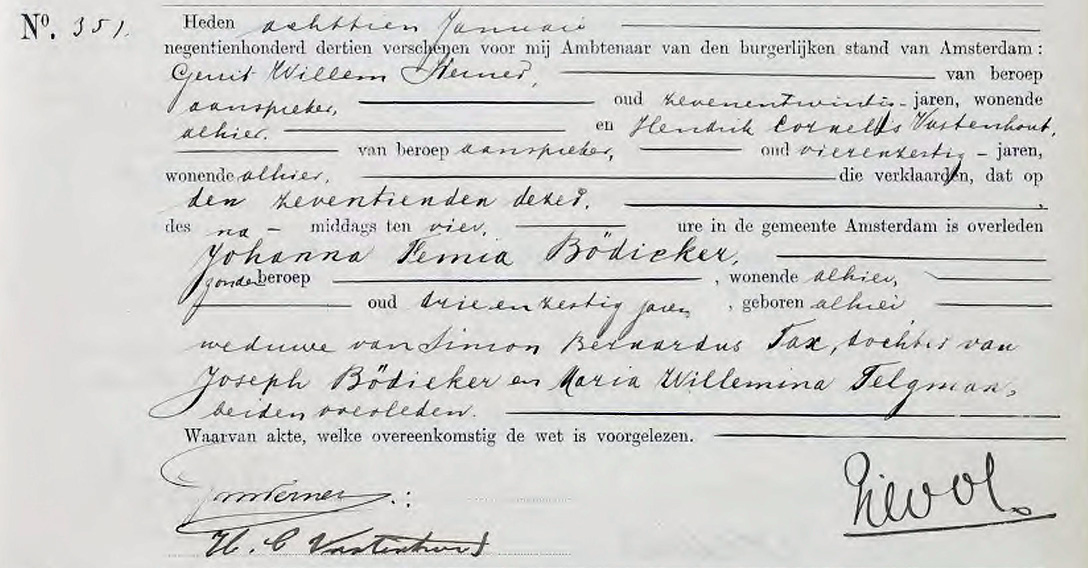 Nº. 351.
Heden achttien Januari
negentienhonderd dertien verschenen voor mij Ambtenaar van den burgerlijken stand van Amsterdam :
Gerrit Willem Sterner, van beroep
aanspreker, oud zevenentwintig jaren, wonende
alhier. en Hendrik Cornelis Vastenhout,
van beroep aanspreker, oud vierenzestig – jaren,
wonende alhier, die verklaarden, dat op
den zeventienden dezer,
des na – middags ten vier, ure in de gemeente Amsterdam is overleden
Johanna Femia Bödicker,
zonder beroep , wonende alhier,
oud drieenzestig jaren , geboren alhier
weduwe van Simon Bernardus Tax, dochter van
Joseph Bödicker en Maria Willemina Telgman,
beiden overleden.
Waarvan akte, welke overeenkomstig de wet is voorgelezen.
H. C Vastenhout